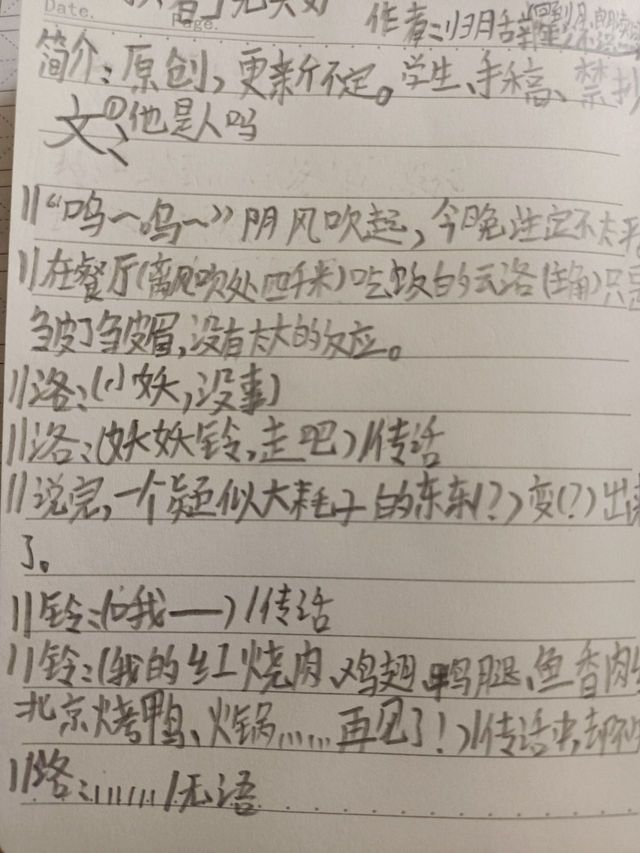 Date.
Page.
作者::归月
简介:原创,更新不定。学生、手稿、禁抄
文、①他是人吗
||“呜～呜～”阴风吹起,今晚注定不太平
||在餐厅(离风吹处四千米)吃饭的云洛(主角)只是
皱了皱眉,没有太大的反应。
||洛:(小妖,没事)
||洛:(妖妖铃,走吧)/传话
||说完,一个疑似大耗子的东东(?)变(?)出来
了。
||铃:(哦我——)/传话
||铃:(我的红烧肉、鸡翅、鸭腿、鱼香肉
北京烤鸭、火锅……再见了!)/传话
||洛:……/无语